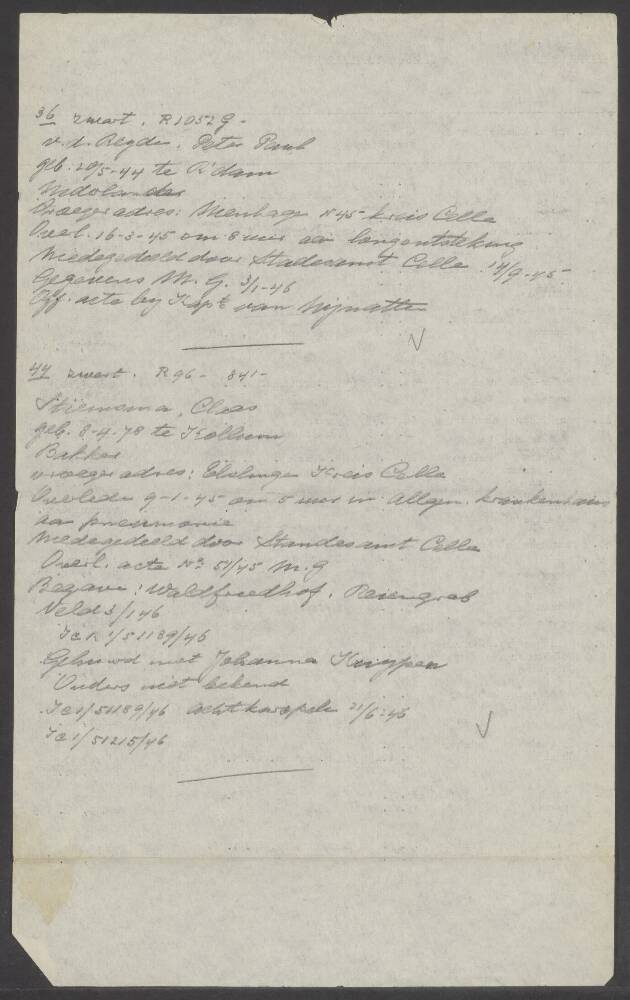 36 zwart. R 10529-
v.d. Regde, Peter Paul
geb. 20/5-44 te R'dam
Nederlander
Vroeger adres: No 45 Kreis Celle
Overl. 16-3-45 om 8 uur aan longontsteking
Medegedeeld door Standesamt Celle 14/9-45
Gegevens M.G. 3/1-46
Off. acte bij Kapt van
44 zwart. R 96-841-
Stiemsma, Claas
geb. 8-4-78 te Kollum
Bakker
vroeger adres: Kreis Celle
Overleden 9-1-45 om 5 uur in Allgem. Krankenhaus
aan pneumonie
Medegedeeld door Standesamt Celle
Overl. acte No 51/45 M.G
Begrave: Waldfriedhof, Reiengrab
Veld 3/146
1/51189/46
Gehuwd met Johanna Kuypen
Ouders niet bekend
1/51189/46 21/6-46
1/51215/46